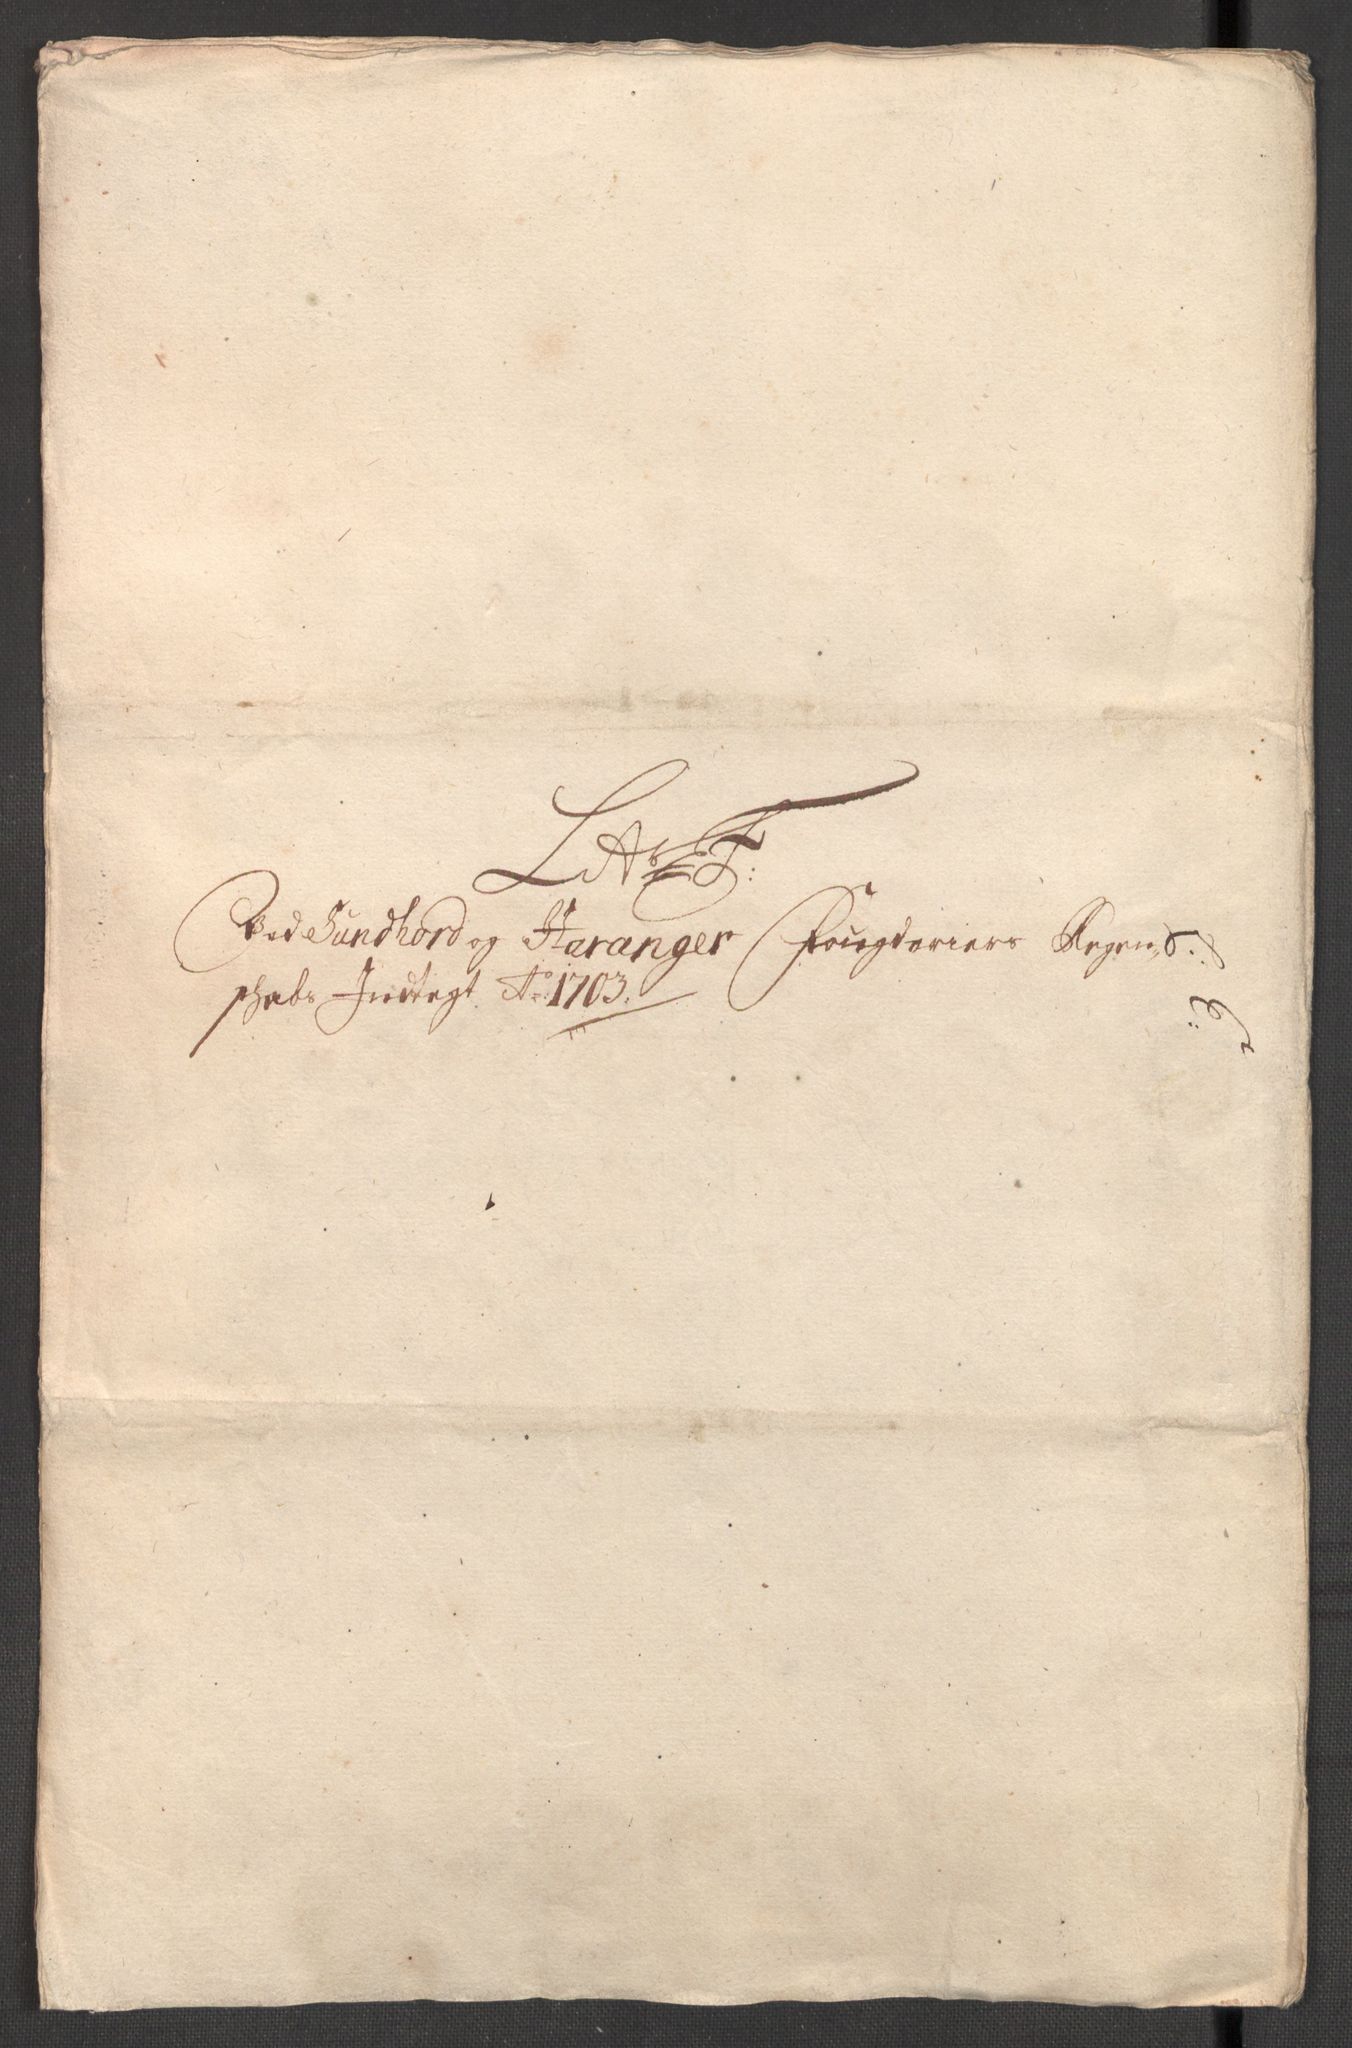 Litr: F:
Ved Sundhord og Haranger Fougderiers Regen,,
schabs Indtegt Ao: 1703.